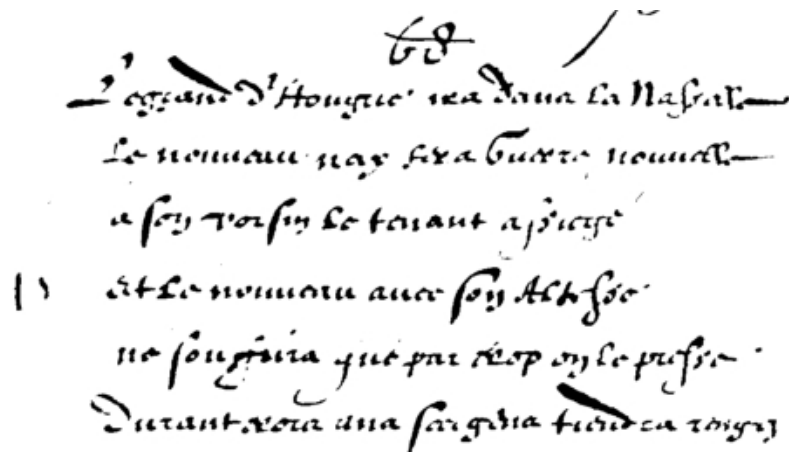 Le grand d'Hongrie ira dans la Nasselle
Le nouveau nay fera Guerre nouvelle
a son voisin le tenant assiege
Et le nouveau avec son Altesse
ne souffrira que par trop on le presse
Durant trois ans ses gens tiendra